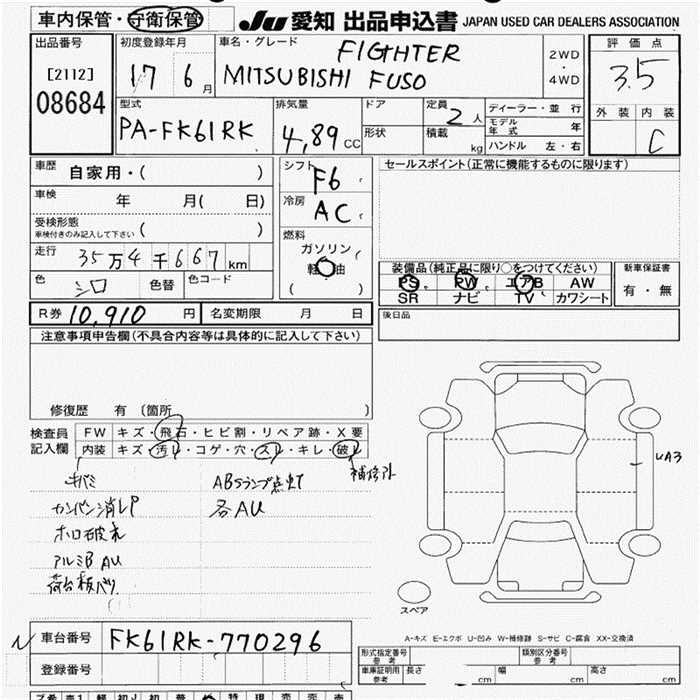 車内保管・守衛保管
JU 愛知 出品申込書 JAPAN USED CAR DEALERS ASSOCIATION
出品番号
[2112]
08684
初度登録年月
17 6月
車名・グレード
FIGHTER
MITSUBISHI FUSO
2WD
・
4WD
評価点
3.5
外装 内装
C
型式
PA-FK61RK
排気量
4,89cc
ドア
形状
定員
2人
積載
kg
ディーラー・並行
モデル年式 年
ハンドル 左・右
車歴 自家用・( )
車検 年 月( 日)
受検形態
車検付きのみ記入して下さい ( )
走行 35万4千667km
色 シロ 色替 色コード
シフト F6
冷房 AC
燃料
ガソリン
軽油
( )
セールスポイント(正常に機能するものに限ります)
装備品(純正品に限り○をつけてください)
PS PW エアB AW
SR ナビ TV カワシート
新車保証書
有・無
R券 10,910円 名変期限 月 日
後日品
注意事項申告欄(不具合内容等は具体的に記入して下さい)
修復歴 有 〔箇所 〕
検査員記入欄
FW キズ・飛石・ヒビ割・リペア跡・X要
内装 キズ・汚レ・コゲ・穴・スレ・キレ・破レ
キバミ
ABSランプ点灯
補修汁
カンバン消しP
各AU
ホロ破れ
アルミB AU
荷台板バリ
UA3
スペア
A-キズ E-エクボ U-凹み W-補修跡 S-サビ C-腐食 XX-交換済
車台番号 FK61RK-770296
登録番号
型式指定番号 参考
類別区分番号 参考
車庫証明用 参考 長さ cm 幅 cm 高さ cm